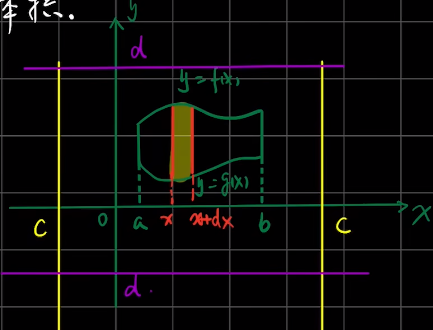 体积.
y
d
y=f(x)
y=g(x)
C
0
a
x
x+dx
b
C
X
d.